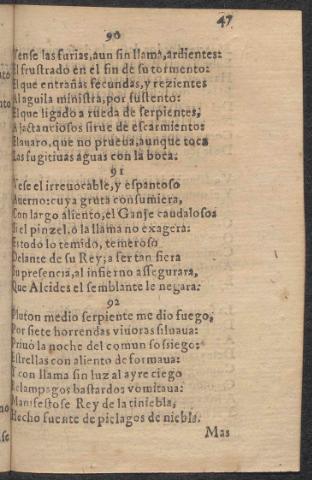 47
90
Vense las furias, aun sin llama, ardientes:
El frustrado en el fin de su tormento:
El que entrañas fecundas, y rezientes
Al aguila ministra, por sustento:
El que ligado a rueda de serpientes,
A jactanciosos sirue de escarmiento:
El auaro, que no prueua, aunque toca
Las fugitiuas aguas con la boca.
91
Vese el irreuocable, y espantoso
Auerno: cuya gruta consumiera,
Con largo aliento, el Ganje caudaloso:
Si el pinzel, o la llama no exagera:
Es todo lo temido, temeroso
Delante de su Rey; a ser tan fiera
Su presencia, al infierno assegurara,
Que Alcides el semblante le negara.
92
Pluton medio serpiente me dio fuego,
Por siete horrendas viuoras siluaua:
Priuò la noche del comun sossiego:
Estrellas con aliento deformaua:
Y con llama sin luz al ayre ciego
Relampagos bastardos vomitaua:
Manifestose Rey de la tiniebla,
Hecho fuente de pielagos de niebla.
Mas